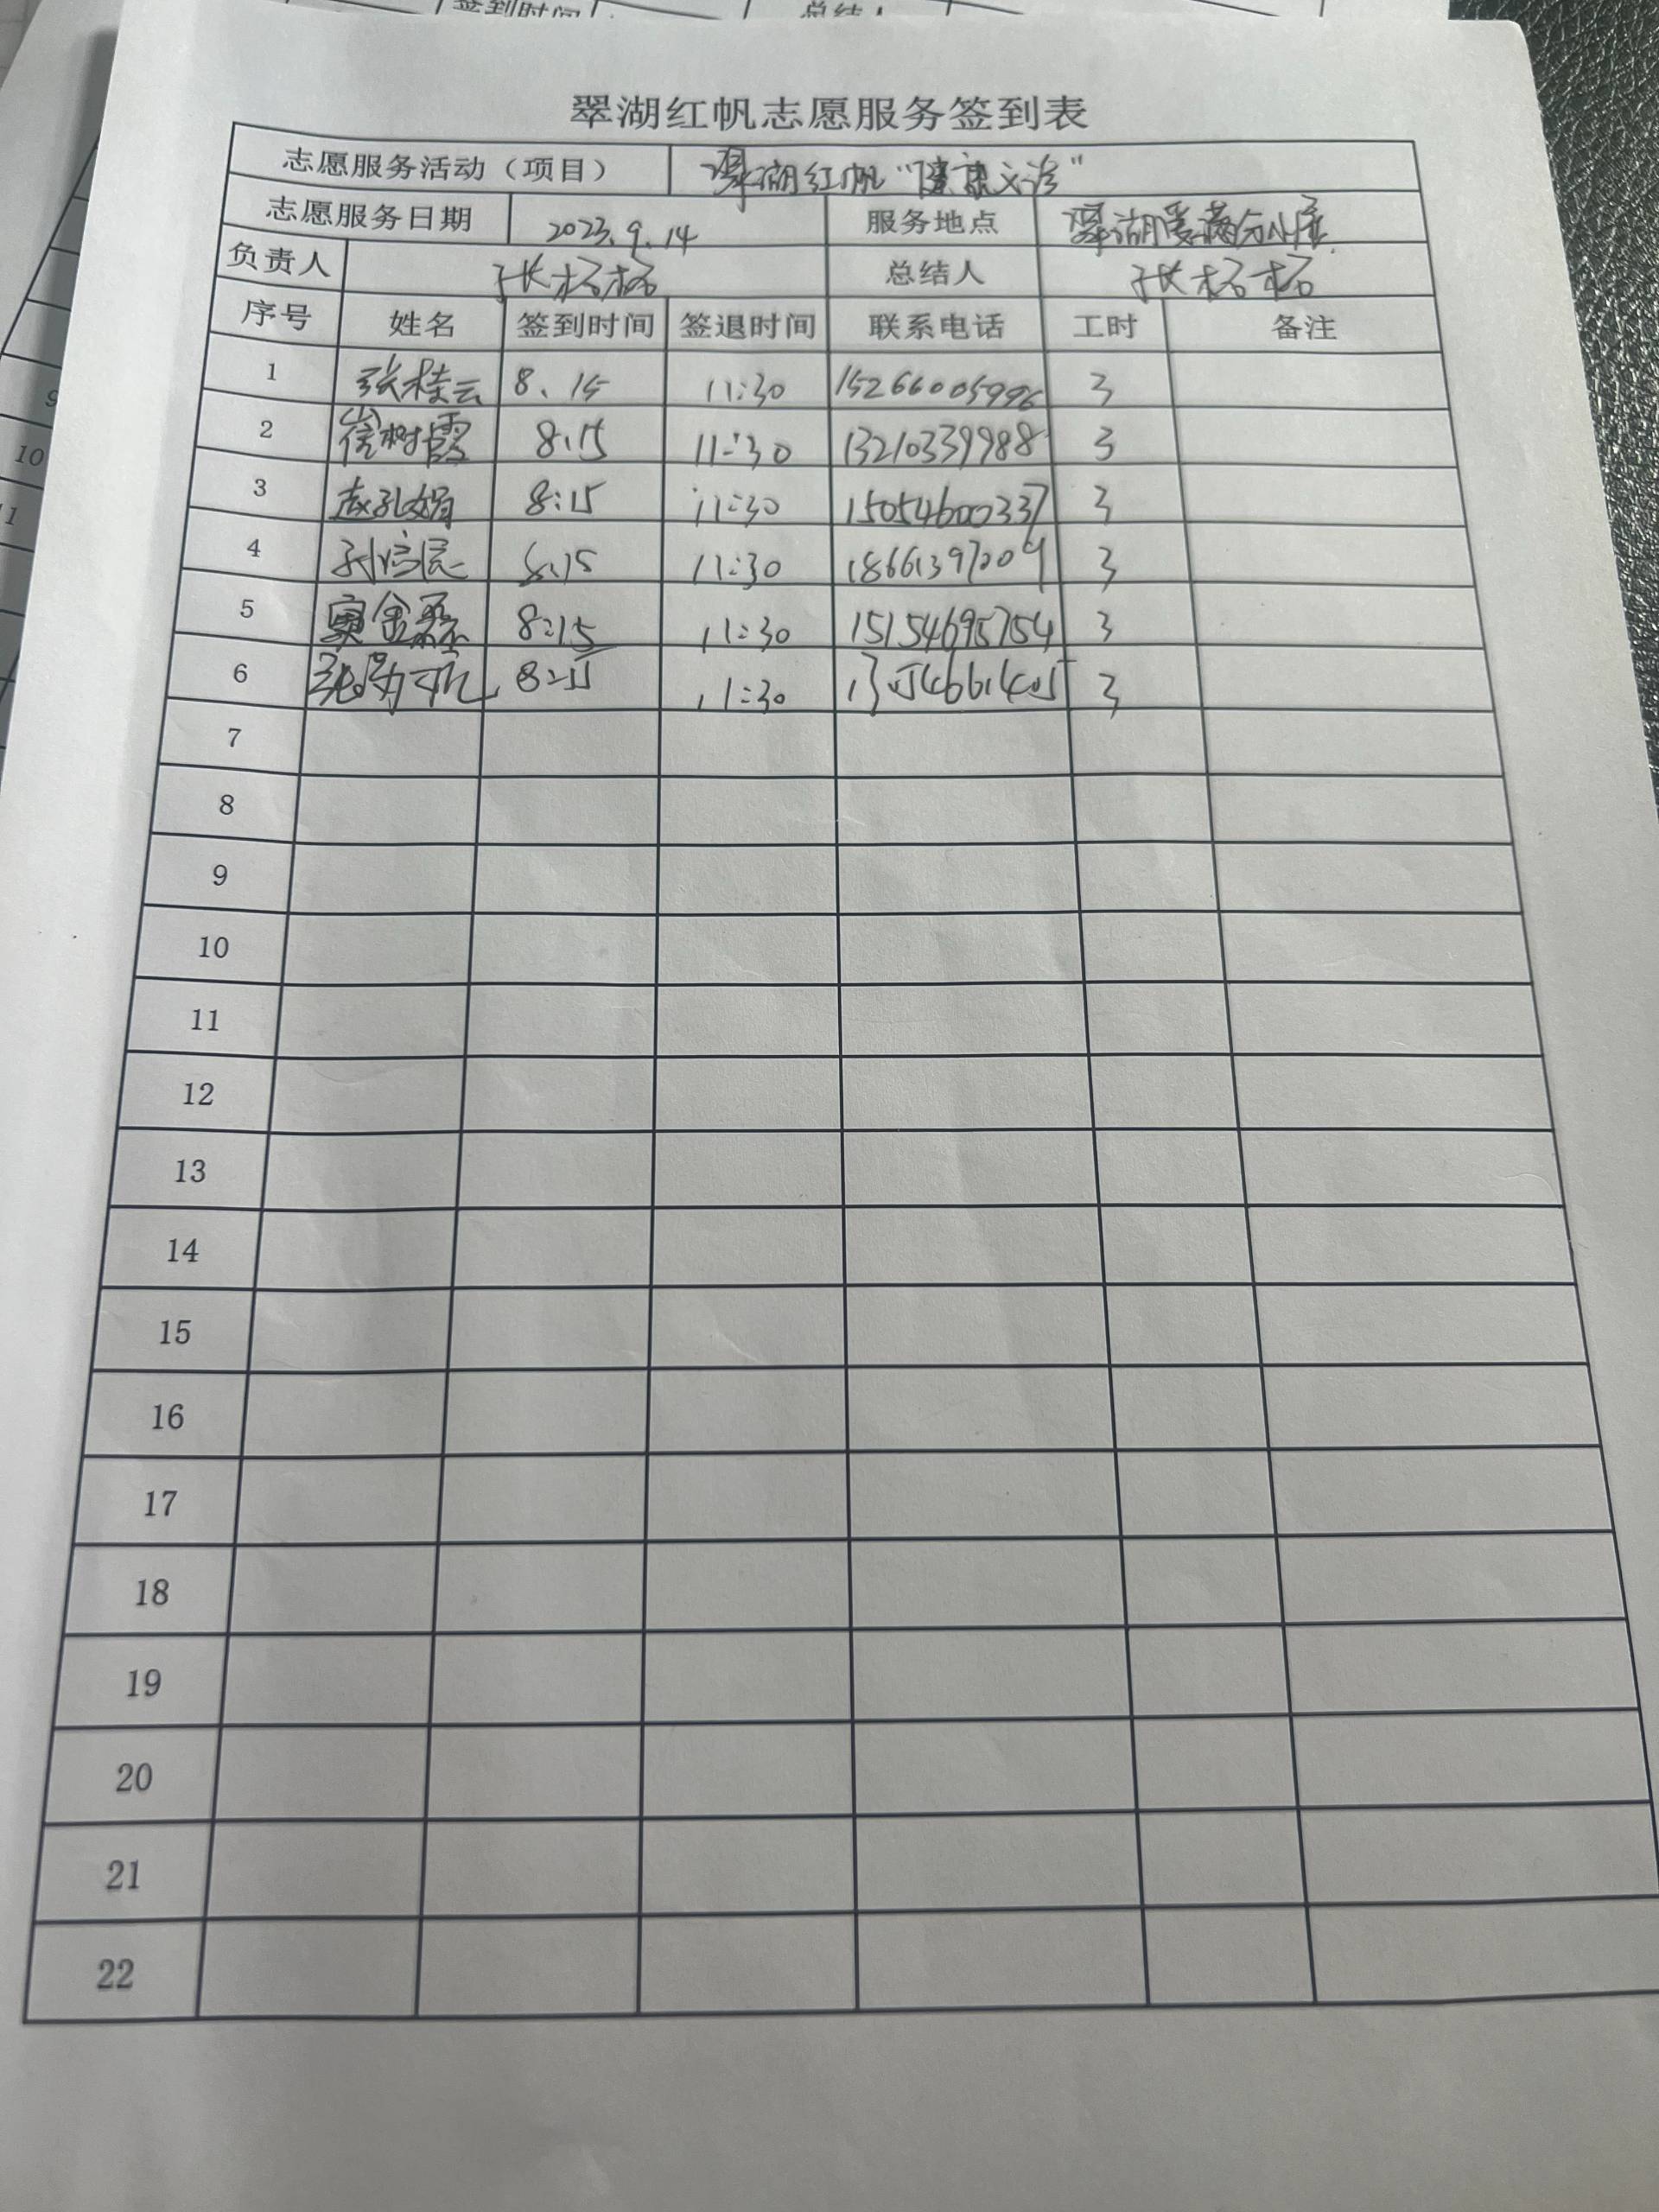 签到时间 总结人
翠湖红帆志愿服务签到表
志愿服务活动（项目） 翠湖红帆“健康义诊”
志愿服务日期 2023.9.14 服务地点 翠湖
负责人 张杨杨 总结人 张杨杨
序号 姓名 签到时间 签退时间 联系电话 工时 备注
1 张桂云 8.15 11:30 15266005996 3
2 崔树霞 8.15 11:30 13210339988 3
3 8:15 11:30 15054600337 3
4 8.15 11:30 18661397209 3
5 8:15 11:30 15154695754 3
6 8:15 11:30 3
7
8
9
10
11
12
13
14
15
16
17
18
19
20
21
22